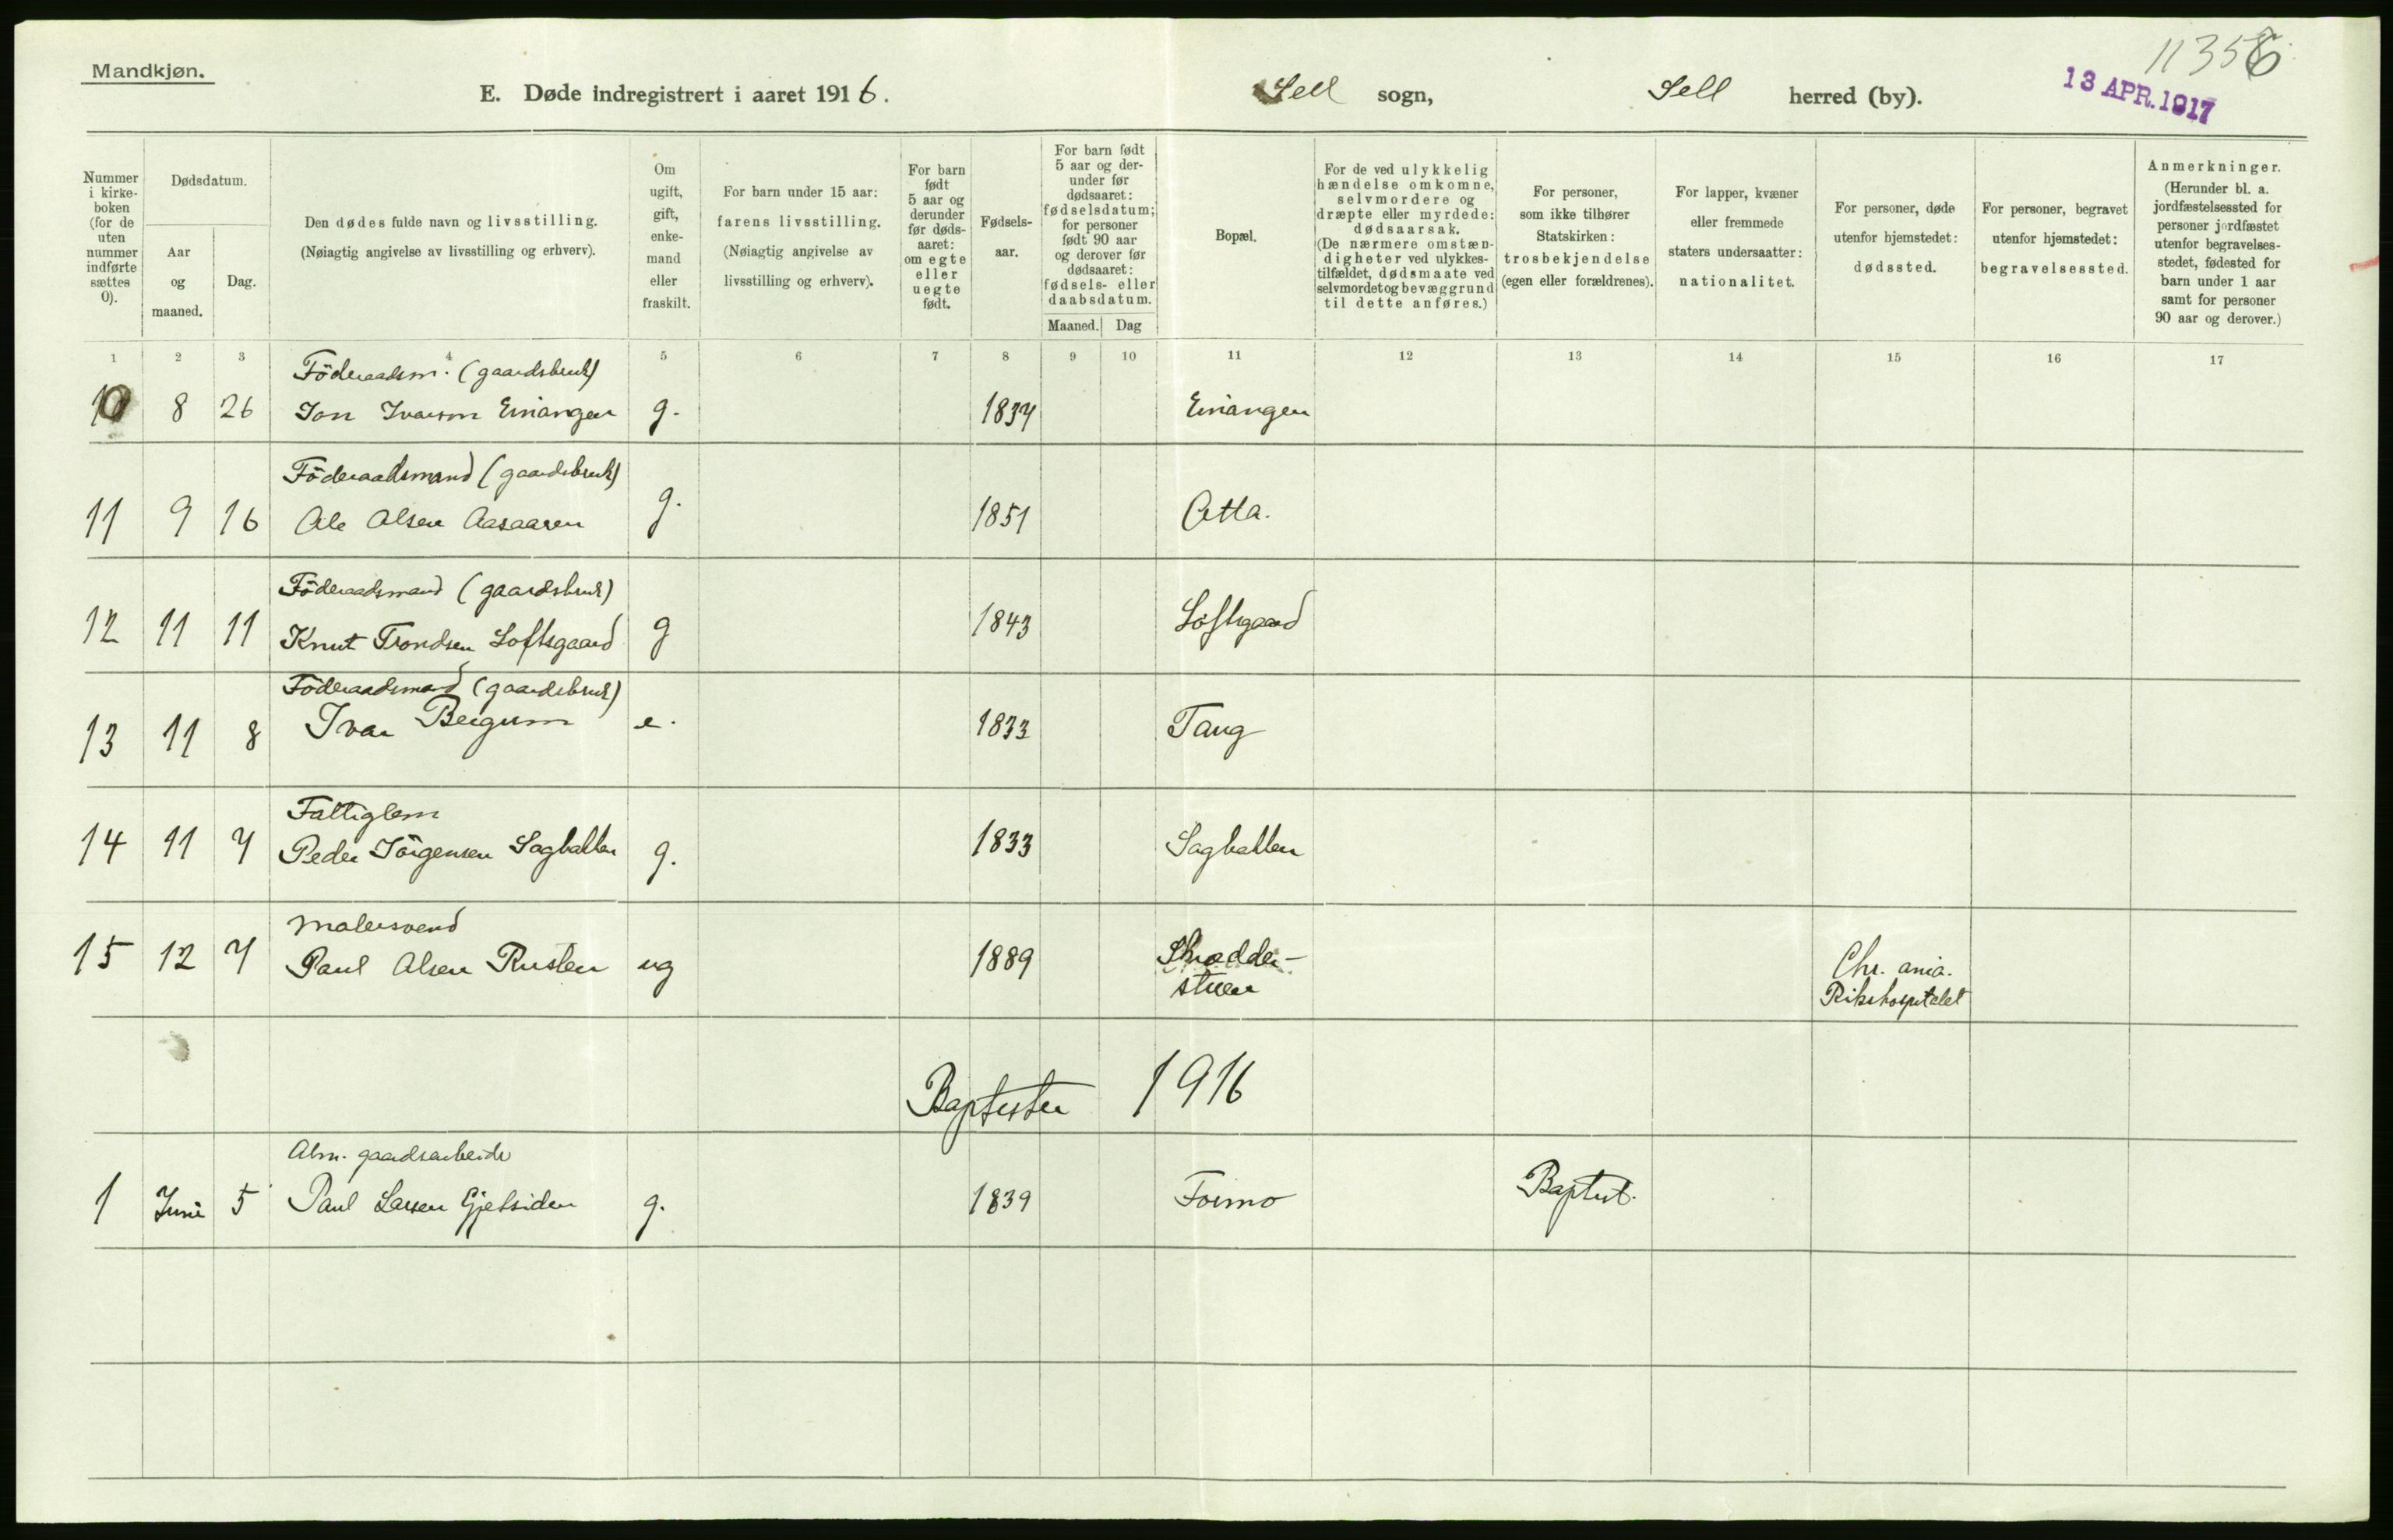 11356
Mandkjøn.
13 APR. 1917
E. Døde indregistrert i aaret 1916. Sell sogn, Sell herred (by).
Nummer i kirke-boken (for de uten nummer indførte sættes 0).
Dødsdatum.
Aar og maaned.
Dag.
Den dødes fulde navn og livsstilling.
(Nøiagtig angivelse av livsstilling og erhverv).
Om ugift, gift, enke-mand eller fraskilt.
For barn under 15 aar: farens livsstilling.
(Nøiagtig angivelse av livsstilling og erhverv).
For barn født 5 aar og derunder før døds-aaret: om egte eller uegte født.
Fødsels-aar.
For barn født 5 aar og der-under før dødsaaret: fødselsdatum; for personer født 90 aar og derover før dødsaaret: fødsels- eller daabsdatum.
Maaned. Dag
Bopæl.
For de ved ulykkelig hændelse omkomne, selvmordere og dræpte eller myrdede: dødsaarsak.
(De nærmere omstæn-digheter ved ulykkes-tilfældet, dødsmaate ved selvmordet og bevæggrund til dette anføres.)
For personer, som ikke tilhører Statskirken: trosbekjendelse (egen eller forældrenes).
For lapper, kvæner eller fremmede staters undersaatter: nationalitet.
For personer, døde utenfor hjemstedet: dødssted.
For personer, begravet utenfor hjemstedet: begravelsessted.
Anmerkninger.
(Herunder bl. a. jordfæstelsessted for personer jordfæstet utenfor begravelses-stedet, fødested for barn under 1 aar samt for personer 90 aar og derover.)
1 2 3 4 5 6 7 8 9 10 11 12 13 14 15 16 17
Föderaadsm. (gaardsbruk)
10 8 26 Jon Ivarsen Einangen g. 1837 Einangen
Föderaadsmand (gaardsbruk)
11 9 16 Ole Olsen Aasaaren g. 1851 Otta.
Föderaadsmand (gaardsbruk)
12 11 11 Knut Trondsen Loftsgaard g 1843 Loftsgaard
Föderaadsmand (gaardsbruk)
13 11 8 Ivar Bergum e. 1833 Taug
Fattiglem
14 11 7 Peder Jörgensen Sagbakken g. 1833 Sagbakken
Malersvend
15 12 7 Paul Olsen Rusten ug 1889 Skrædder-
stuen
Chr. ania.
Rikshospitalet
Baptister 1916
Alm. gaardsarbeide
1 Juni 5 Paul Larsen Gjetsiden g. 1839 Formo Baptist.